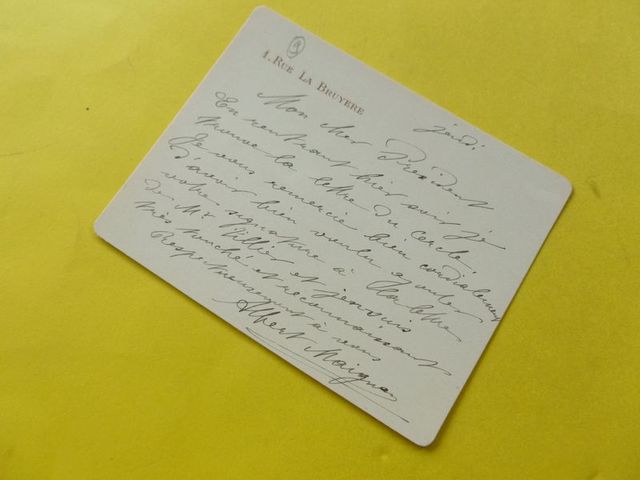 1. RUE LA BRUYERE
jeudi.
Mon cher Président
En rentrant hier soir je
trouve la lettre du cercle.
Je vous remercie bien cordialement
d'avoir bien voulu
votre signature à
de Mr Villier et j'en suis
très touché et reconnaissant
Respectueusement à vous
Albert Maignan